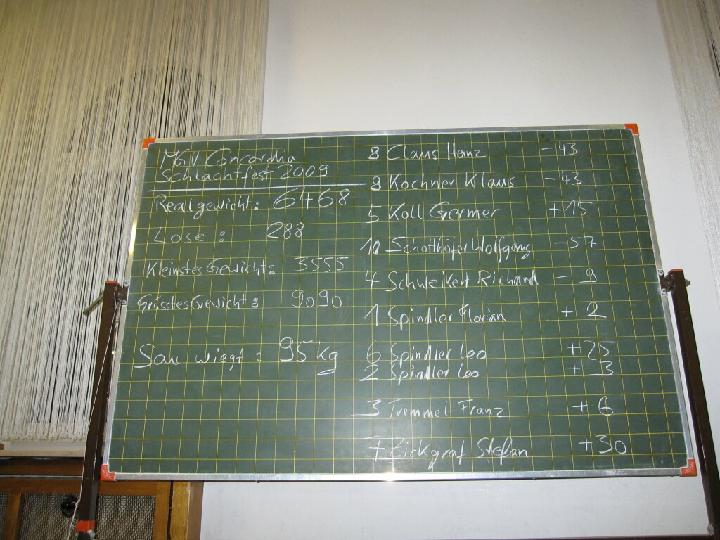 MGV Concordia
Schlachtfest 2009
Realgewicht: 6468
Lose: 288
Kleinstes Gewicht: 3555
Grösstes Gewicht: 9090
Sau wiegt: 95 kg
8 Claus Hanz -43
8 Kochner Klaus -43
5 Koll Germer +15
10 Wolfgang -57
4 Schweikert Richard - 9
1 Spindler Florian + 2
6 Spindler Leo +25
2 Spindler Leo + 3
3 Trommel Franz + 6
7 Zickgraf Stefan +30